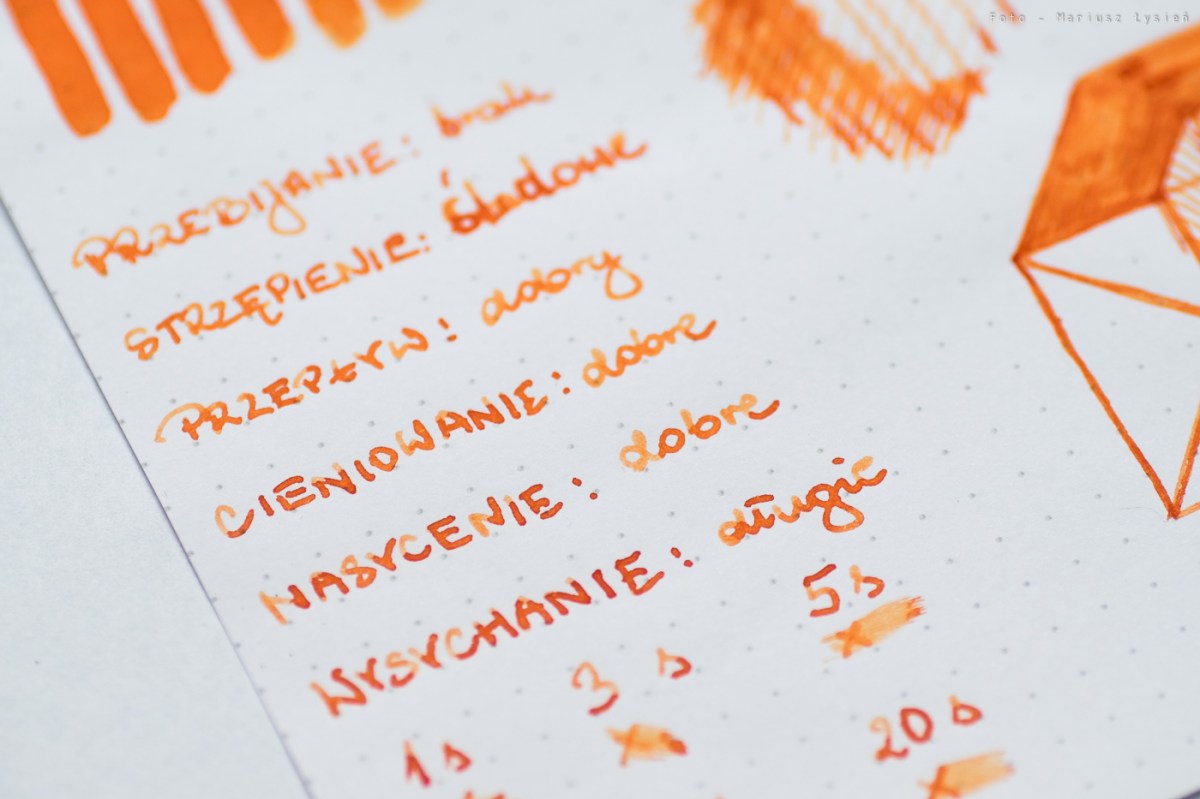 Foto - Mariusz Łysień
PRZEBIJANIE: brak
STRZĘPIENIE: śladowe
PRZEPŁYW: dobry
CIENIOWANIE: dobre
NASYCENIE: dobre
WYSYCHANIE: długie
1s 3 s 5s
20s